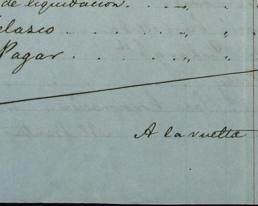 de liquidacion. . . . „ . „
elasco . . . . . . „ . „
Pagar . . . . . . „ „
A la vuelta